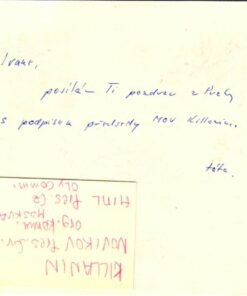 Ivane,
posílám Ti pozdrav z Prahy
s podpisem předsedy MOV Killanina.
táta.
KILLANIN
NOVIKOV Pres. Sov.
Org. Komu.
MOSKVA
HIML Pres. Cz
Oly Comm.